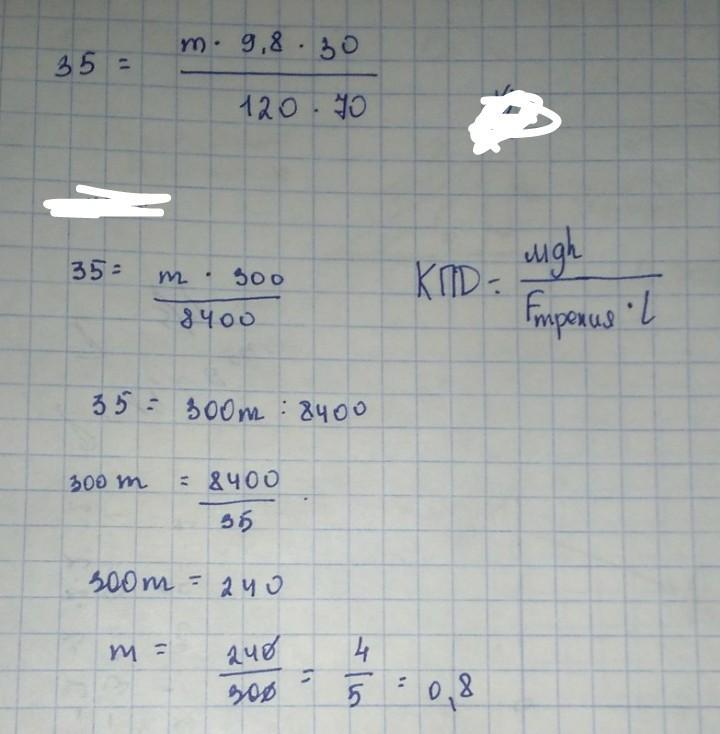 35 = m · 9,8 · 30 / 120 · 70
35 = m · 300 / 8400
КПД = mgh / Fтрения · l
35 = 300m : 8400
300m = 8400 / 35
300m = 240
m = 240 / 300 = 4 / 5 = 0,8